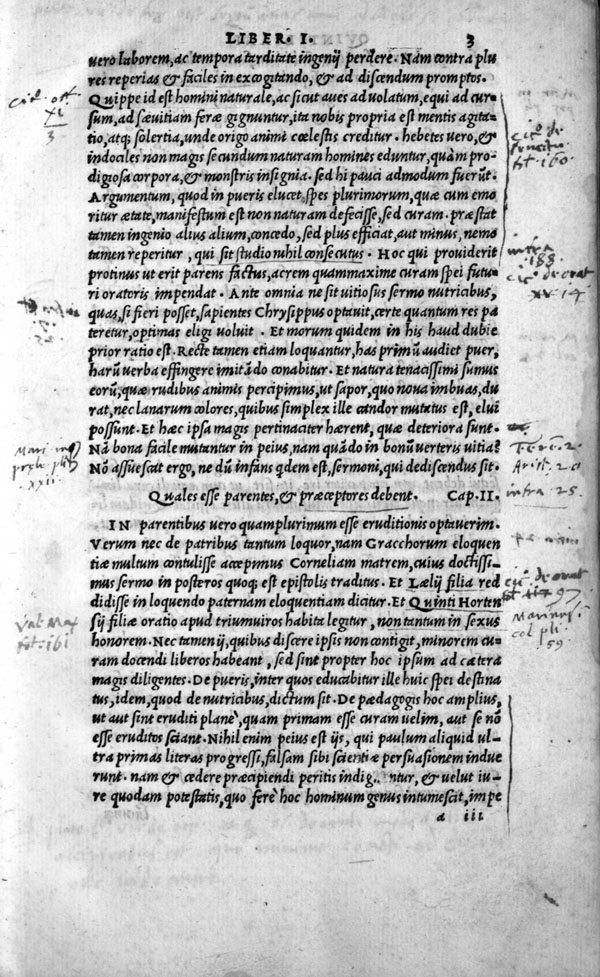 LIBER. I. 3
vero laborem, ac tempora tarditate ingenij perdere. Nam contra plu
res reperias & faciles in excogitando, & ad discendum promptos.
Quippe id est homini naturale, ac sicut aues ad volatum, equi ad cur-
sum, ad sæuitiam feræ gignuntur, ita nobis propria est mentis agita-
tio, atq; solertia, unde origo animi cœlestis creditur. hebetes vero, &
indociles non magis secundum naturam homines eduntur, quàm pro-
digiosa corpora, & monstris insignia. sed hi pauci admodum fuerūt.
Argumentum, quod in pueris elucet, spes plurimorum, quæ cum emo
ritur ætate, manifestum est non naturam defecisse, sed curam. præstat
tamen ingenio alius alium, concedo, sed plus efficiat, aut minus, nemo
tamen reperitur, qui sit studio nihil consecutus. Hoc qui prouiderit
protinus ut erit parens factus, acrem quammaxime curam spei futu
ri oratoris impendat. Ante omnia ne sit vitiosus sermo nutricibus,
quas, si fieri posset, sapientes Chrysippus optauit, certe quantum res pa
teretur, optimas eligi voluit. Et morum quidem in his haud dubie
prior ratio est. Recte tamen etiam loquantur, has primū audiet puer,
harū verba effingere imitādo conabitur. Et natura tenacissimi sumus
eorū, quæ rudibus animis percipimus, ut sapor, quo noua imbuas, du
rat, nec lanarum colores, quibus simplex ille candor mutatus est, elui
possunt. Et hæc ipsa magis pertinaciter hærent, quæ deteriora sunt.
Nā bona facile mutantur in peius, nam quādo in bonū verteris vitia?
Nō assuescat ergo, ne dū infans qdem est, sermoni, qui dediscendus sit.
Quales esse parentes, & præceptores debent. Cap. II.
IN parentibus vero quamplurimum esse eruditionis optauerim.
Verum nec de patribus tantum loquor, nam Gracchorum eloquen
tiæ multum contulisse accepimus Corneliam matrem, cuius doctissi-
mus sermo in posteros quoq; est epistolis traditus. Et Lælij filia red
didisse in loquendo paternam eloquentiam dicitur. Et Quinti Horten
sij filiæ oratio apud triumuiros habita legitur, non tantum in sexus
honorem. Nec tamen ij, quibus discere ipsis non contigit, minorem cu-
ram docendi liberos habeant, sed sint propter hoc ipsum ad cætera
magis diligentes. De pueris, inter quos educabitur ille huic spei destina
tus, idem, quod de nutricibus, dictum sit. De pædagogis hoc amplius,
ut aut sint eruditi planè, quam primam esse curam uelim, aut se nō
esse eruditos sciant. Nihil enim peius est ijs, qui paulum aliquid ul-
tra primas literas progressi, falsam sibi scientiæ persuasionem indue
runt. nam & cædere præcipiendi peritis indig.. ntur, & uelut iu-
re quodam potestatis, quo ferè hoc hominum genus intumescit, impe
a iii
3
160.
infra
188
xv. 14
xxii.
Aristi. 20
infra 25.
Val. Max
59